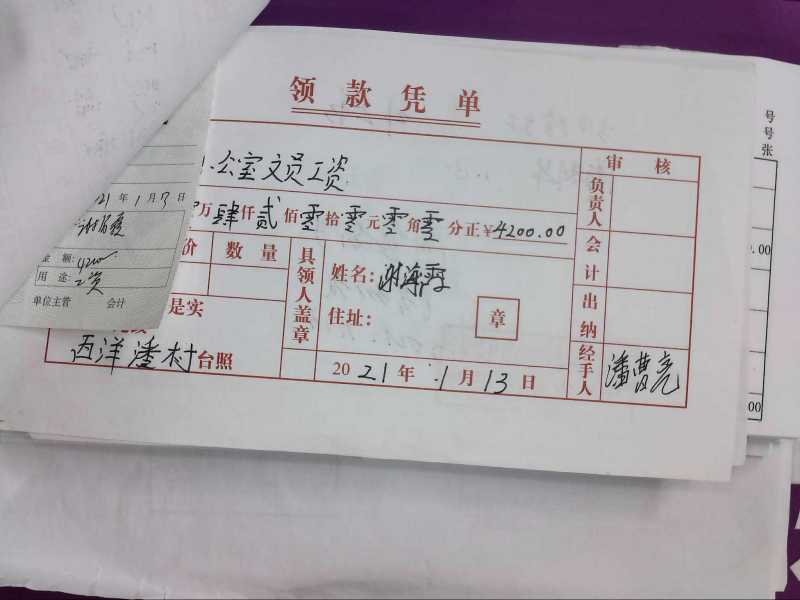 领款凭单
公室文员工资
万肆仟贰佰零拾零元零角零分正¥4200.00
价 数量
具领人盖章
姓名:
住址:
章
是实
西洋潘村台照
2021年1月13日
审核
负责人
会计
出纳
经手人
潘曹亮
21年1月13日
金额:4200
用途:工资
单位主管 会计
号
号
张
0.00
00